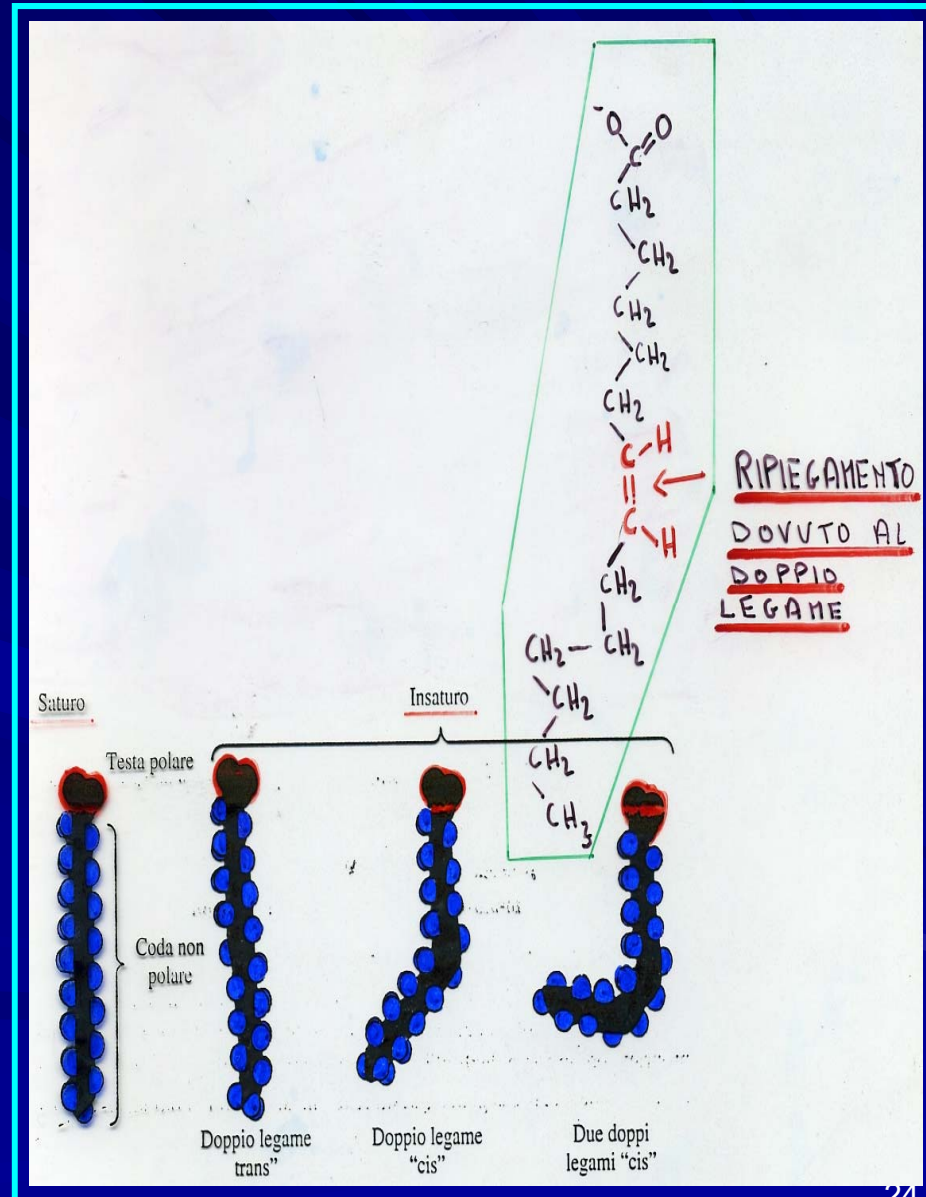 ⁻O O
C
CH₂
CH₂
CH₂
CH₂
CH₂
C H
C H
CH₂
CH₂ CH₂
CH₂
CH₂
CH₃
RIPIEGAMENTO
DOVUTO AL
DOPPIO
LEGAME
Saturo
Insaturo
Testa polare
Coda non
polare
Doppio legame
trans”
Doppio legame
“cis”
Due doppi
legami “cis”
24